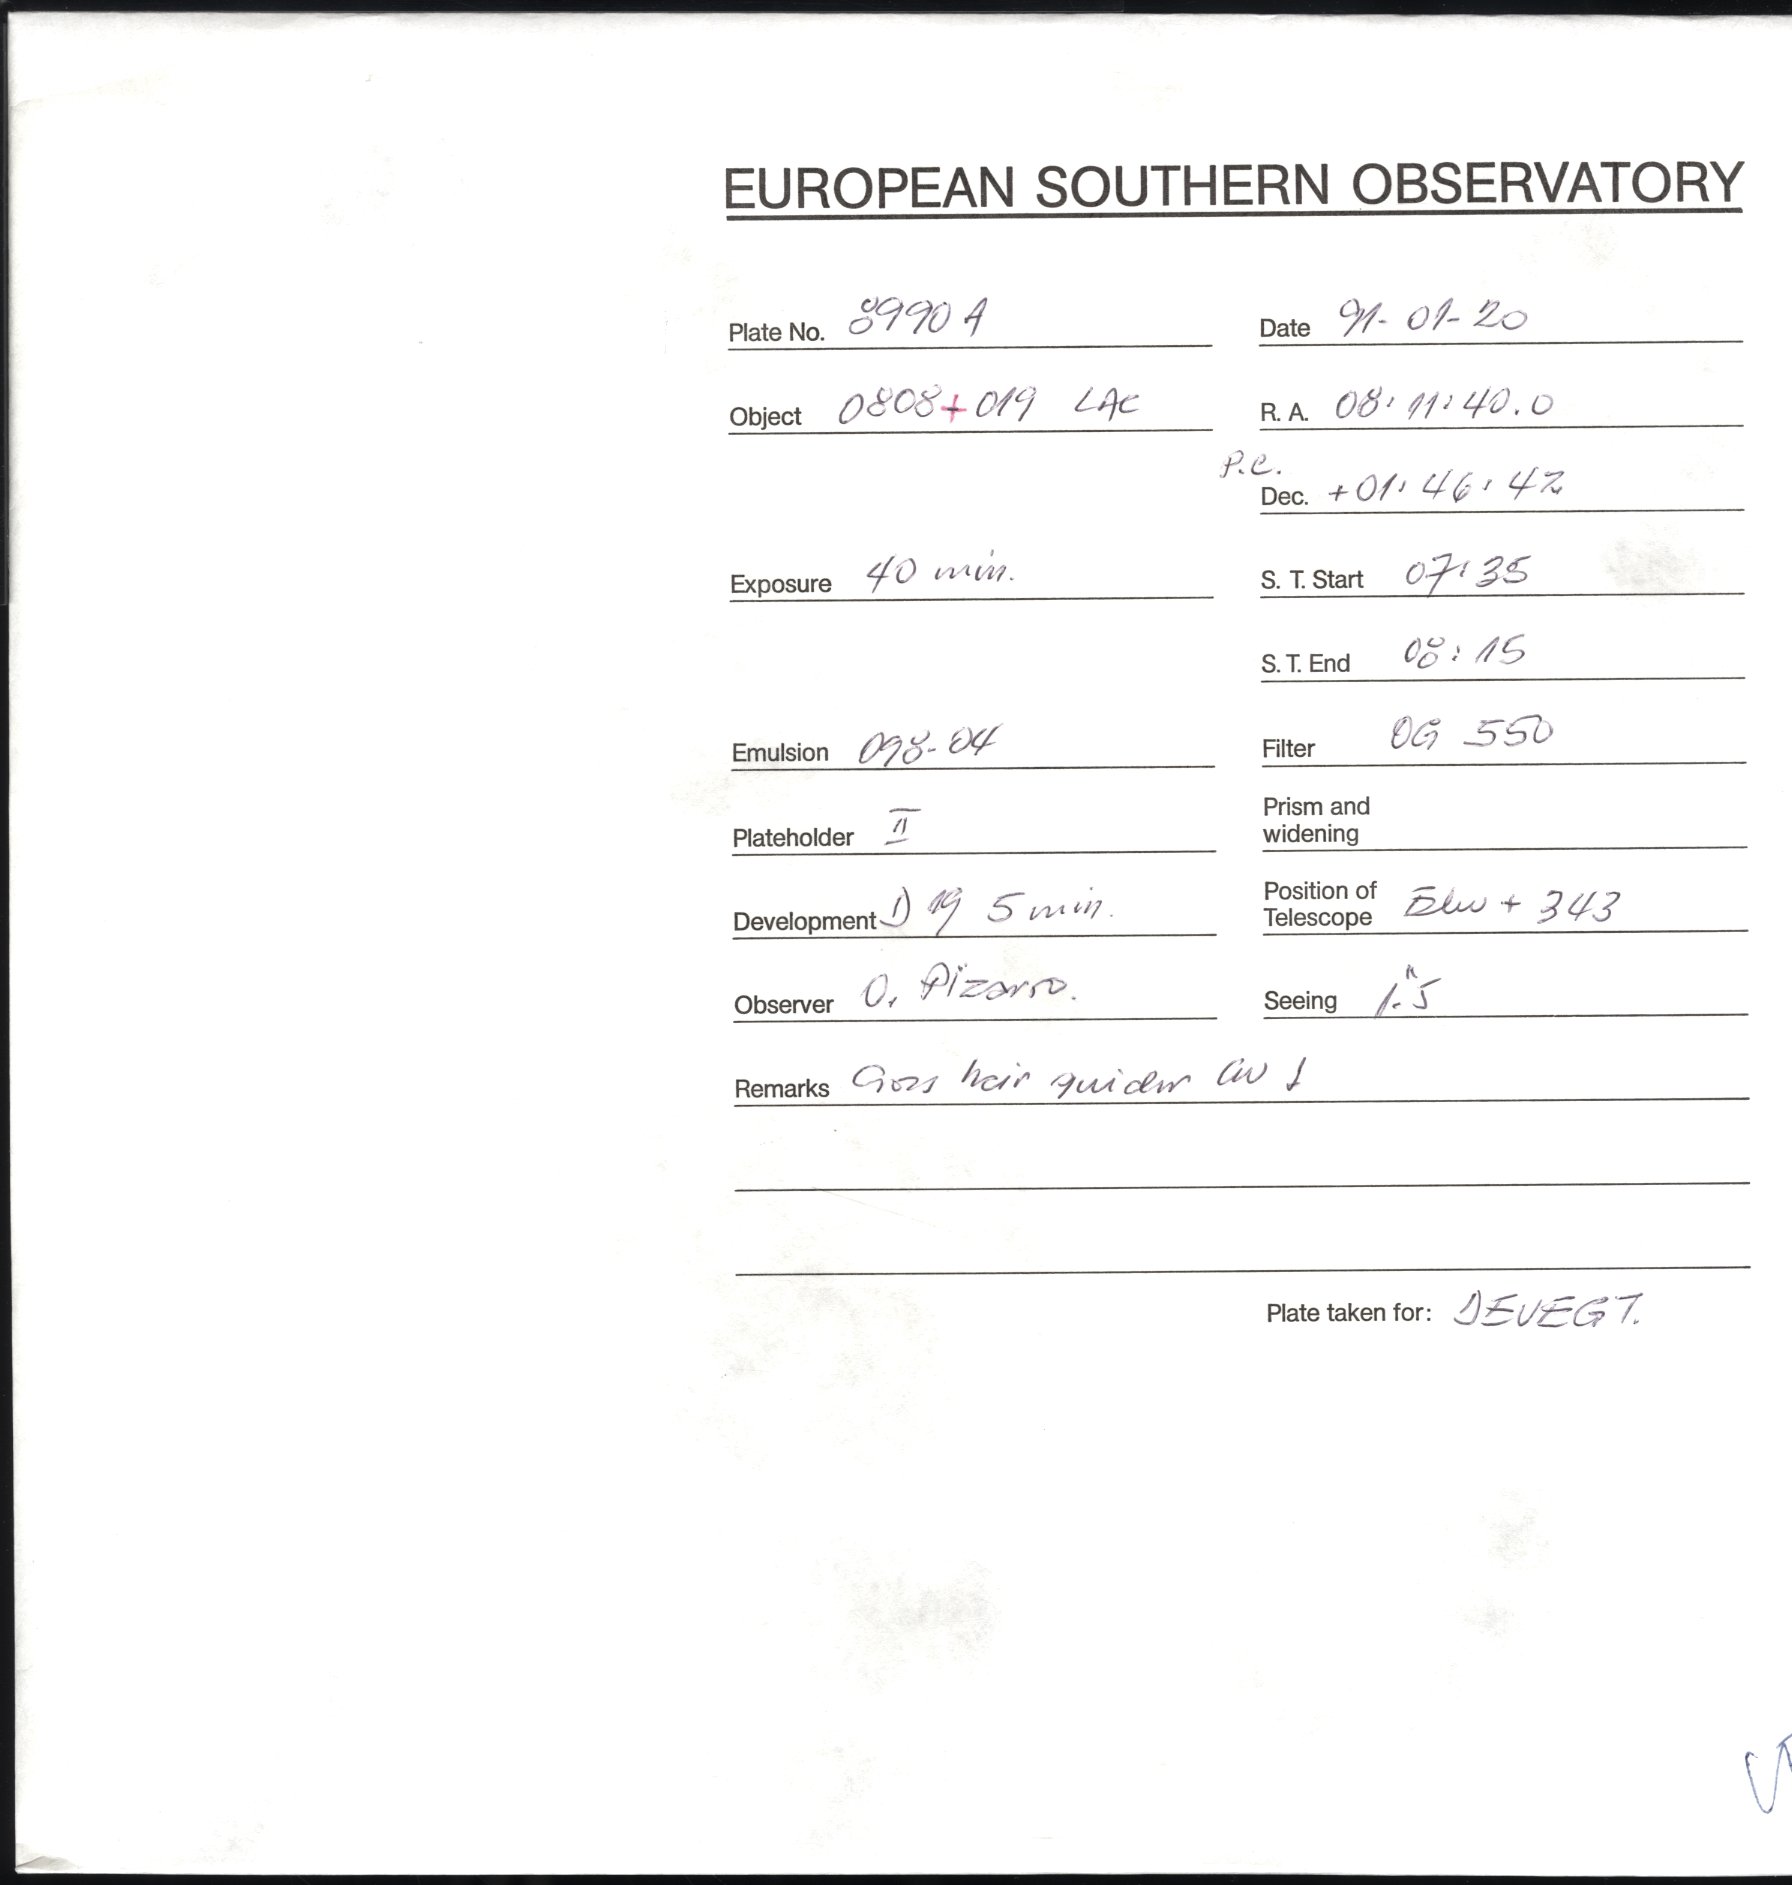 EUROPEAN SOUTHERN OBSERVATORY
Plate No. 8990 A
Date 91-01-20
Object 0808+019 LAC
R. A. 08:11:40.0
P.C.
Dec. +01:46:42
Exposure 40 min.
S. T. Start 07:35
S. T. End 08:15
Emulsion 098-04
Filter OG 550
Plateholder II
Prism and
widening
Development D 19 5 min.
Position of
Telescope + 343
Observer O. Pizarro.
Seeing 1."5
Remarks Cross hair guider
Plate taken for: DEVEGT.